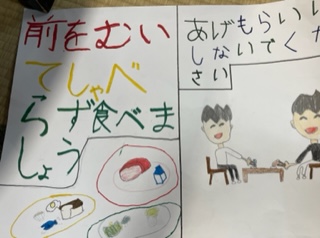 前をむい
てしゃべ
らず食べま
しょう
あげもらい
しないでくだ
さい